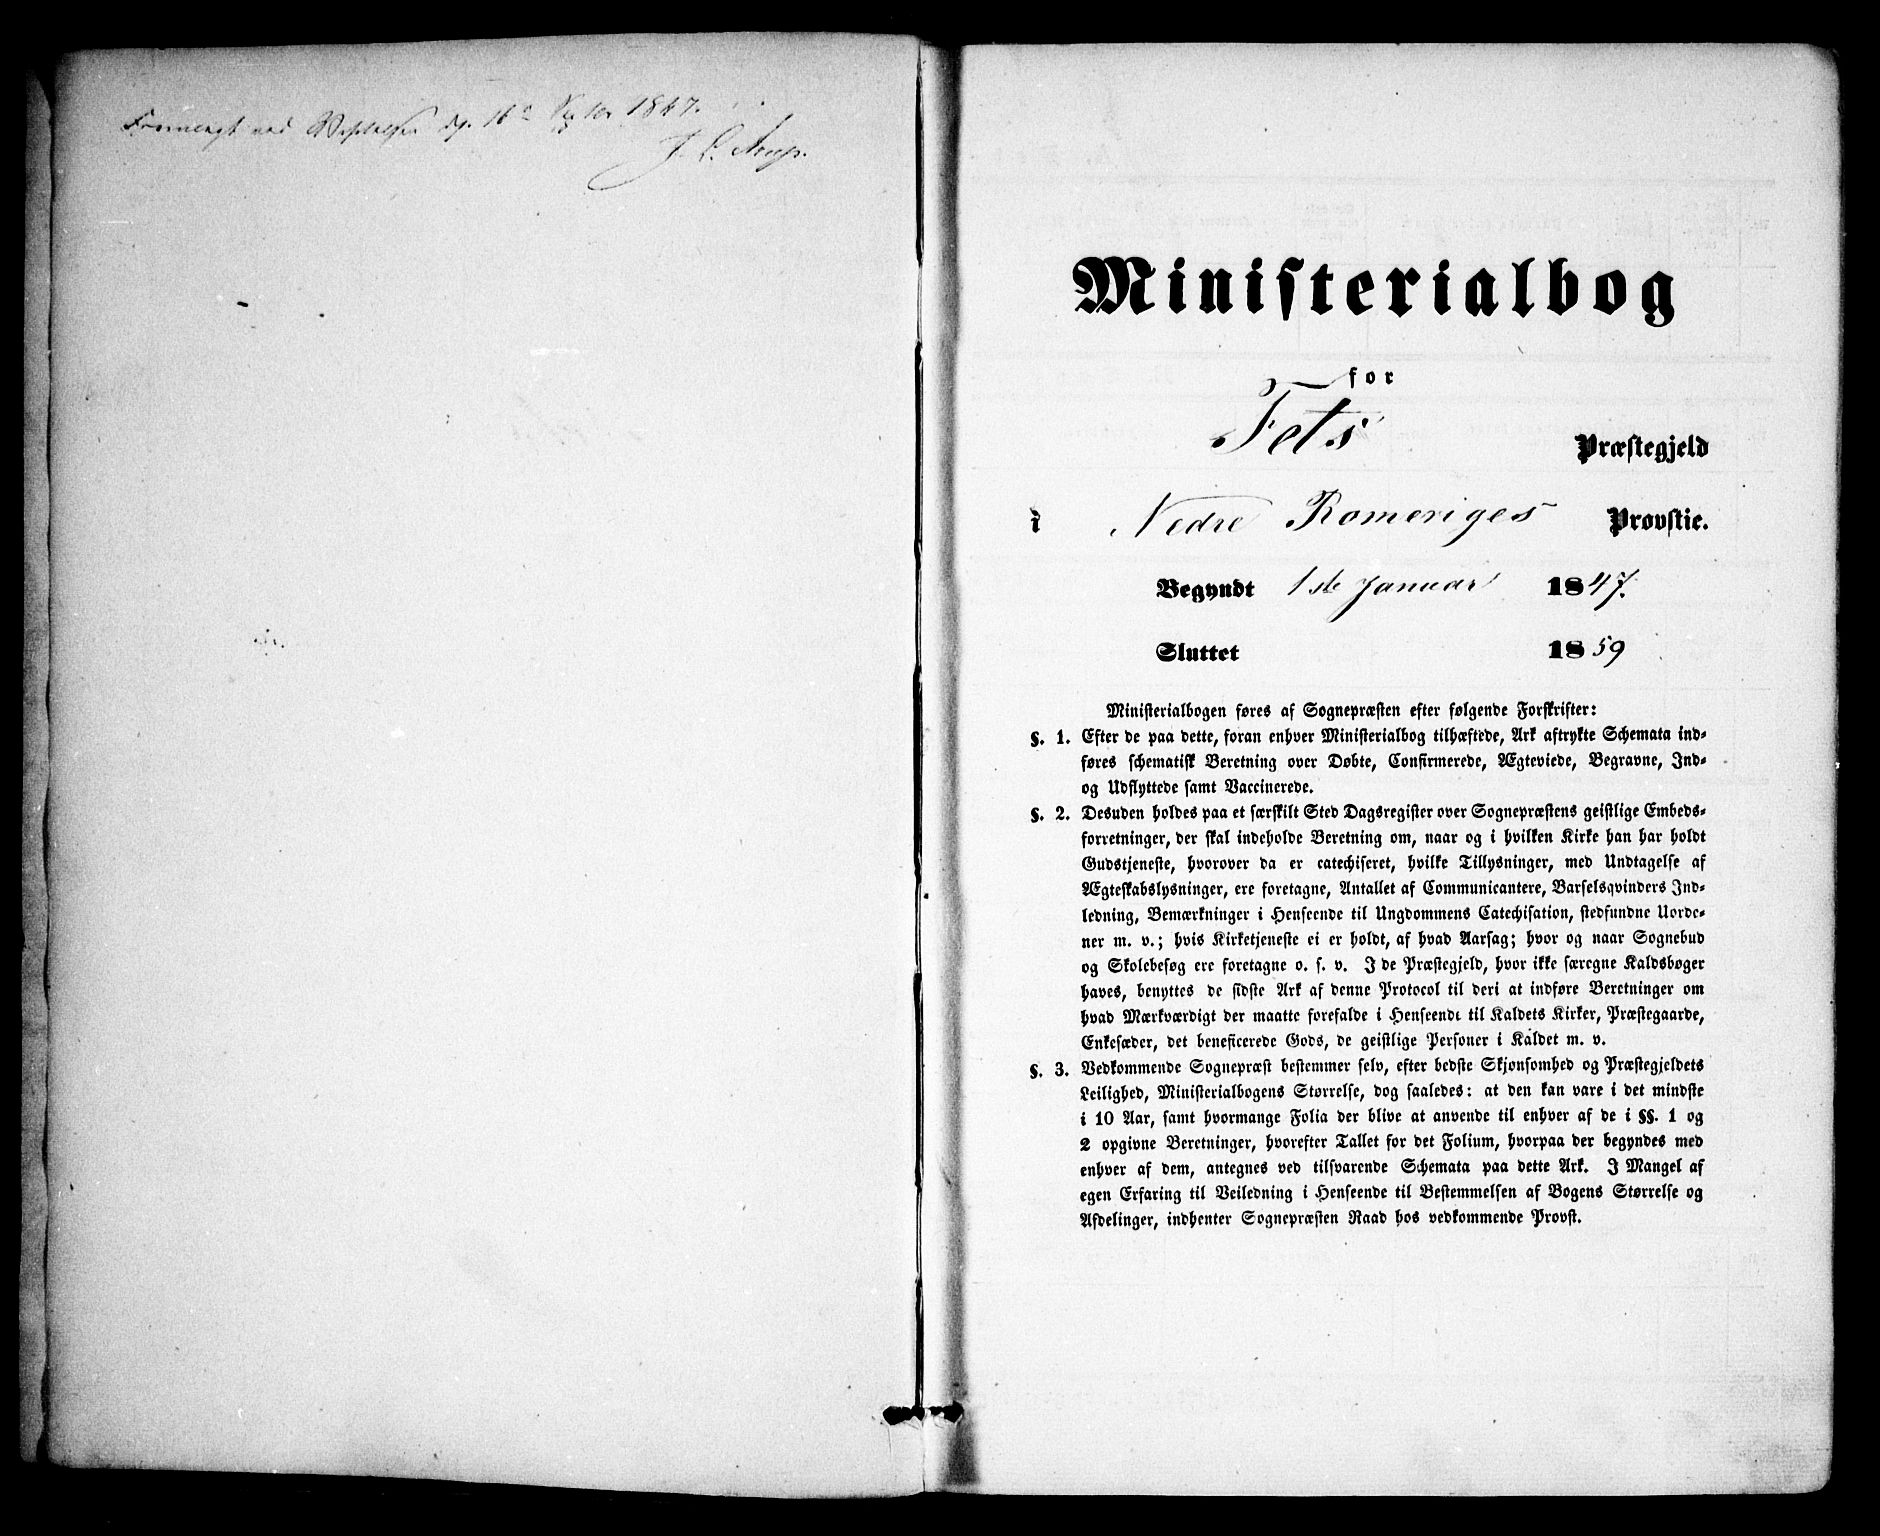 Fremlagt ved Visitatsen d. 16de Septer 1847.
J. L. Arup.
Ministerialbog
for
Fets Præstegjeld
i Nedre Romeriges Provstie.
Begyndt 1ste Januar 1847.
Sluttet 1859
Ministerialbogen føres af Sognepræsten efter følgende Forskrifter:
§. 1. Efter de paa dette, foran enhver Ministerialbog tilhæftede, Ark aftrykte Schemata ind-
føres schematisk Beretning over Døbte, Confirmerede, Ægteviede, Begravne, Ind-
og Udflyttede samt Vaccinerede.
§. 2. Desuden holdes paa et særskilt Sted Dagsregister over Sognepræstens geistlige Embeds-
forretninger, der skal indeholde Beretning om, naar og i hvilken Kirke han har holdt
Gudstjeneste, hvorover da er catechiseret, hvilke Tillysninger, med Undtagelse af
Ægteskabslysninger, ere foretagne, Antallet af Communicantere, Barselsqvinders Ind-
ledning, Bemærkninger i Henseende til Ungdommens Catechisation, stedfundne Uorde-
ner m. v.; hvis Kirketjeneste ei er holdt, af hvad Aarsag; hvor og naar Sognebud
og Skolebesøg ere foretagne o. s. v. I de Præstegjeld, hvor ikke særegne Kaldsbøger
haves, benyttes de sidste Ark af denne Protocol til deri at indføre Beretninger om
hvad Mærkværdigt der maatte forefalde i Henseende til Kaldets Kirker, Præstegaarde,
Enkesæder, det beneficerede Gods, de geistlige Personer i Kaldet m. v.
§. 3. Vedkommende Sognepræst bestemmer selv, efter bedste Skjønsomhed og Præstegjeldets
Leilighed, Ministerialbogens Størrelse, dog saaledes: at den kan vare i det mindste
i 10 Aar, samt hvormange Folia der blive at anvende til enhver af de i §§. 1 og
2 opgivne Beretninger, hvorefter Tallet for det Folium, hvorpaa der begyndes med
enhver af dem, antegnes ved tilsvarende Schemata paa dette Ark. I Mangel af
egen Erfaring til Veiledning i Henseende til Bestemmelsen af Bogens Størrelse og
Afdelinger, indhenter Sognepræsten Raad hos vedkommende Provst.